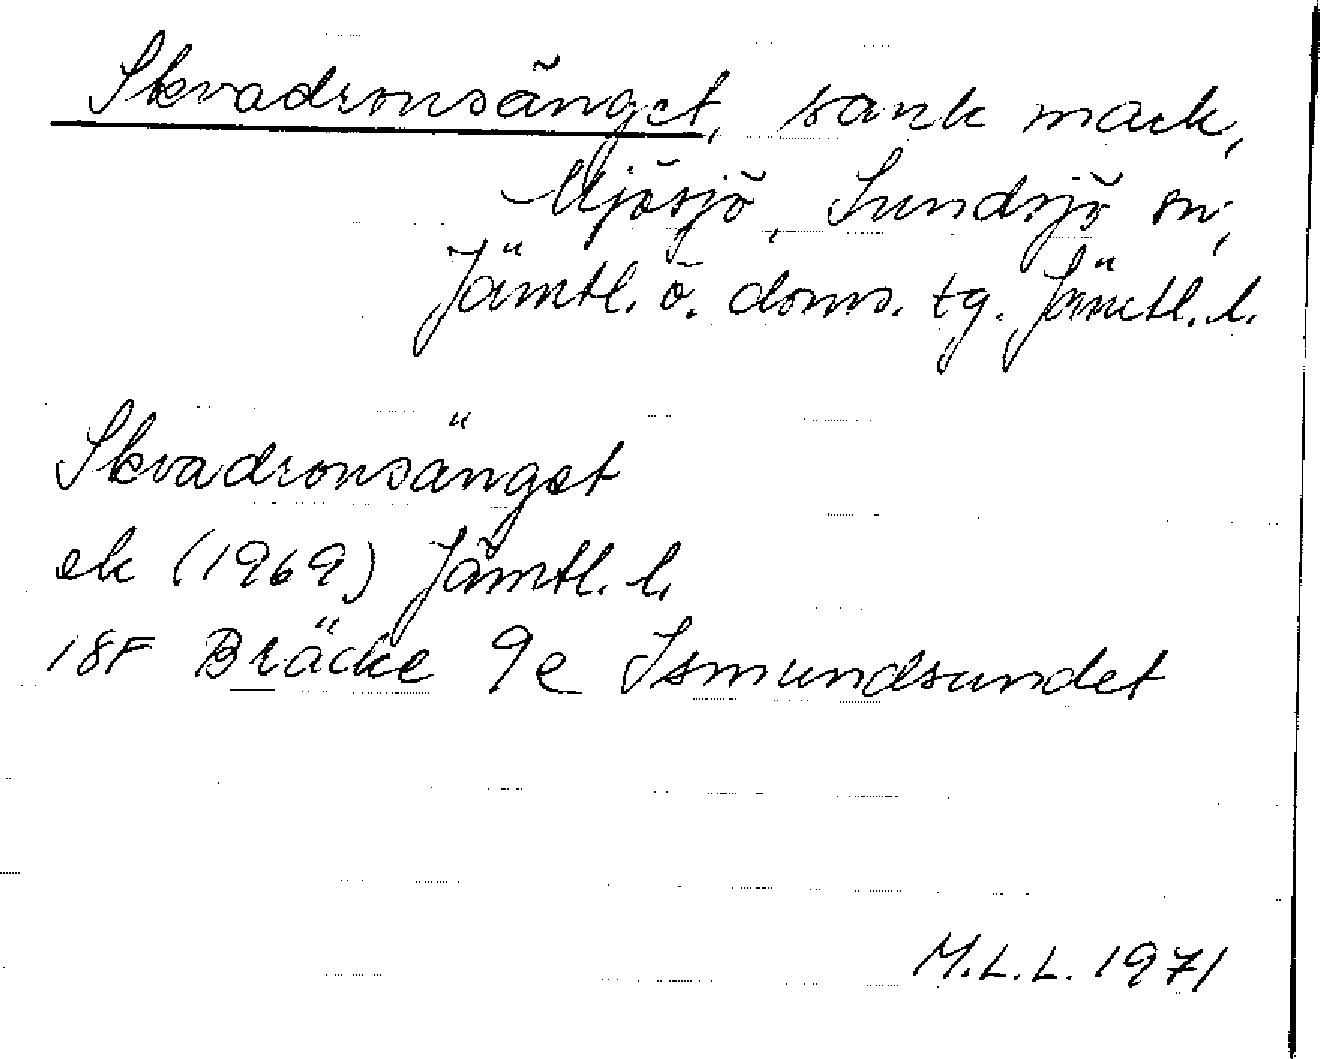 Skvadronsänget, sank mark,
Mjösjö, Sundsjö sn,
Jämtl. ö. doms. tg. Jämtl. l.
Skvadronsänget
ek (1969) Jämtl. l.
18F Bräcke 9e Ismundsundet
M.L.L. 1971